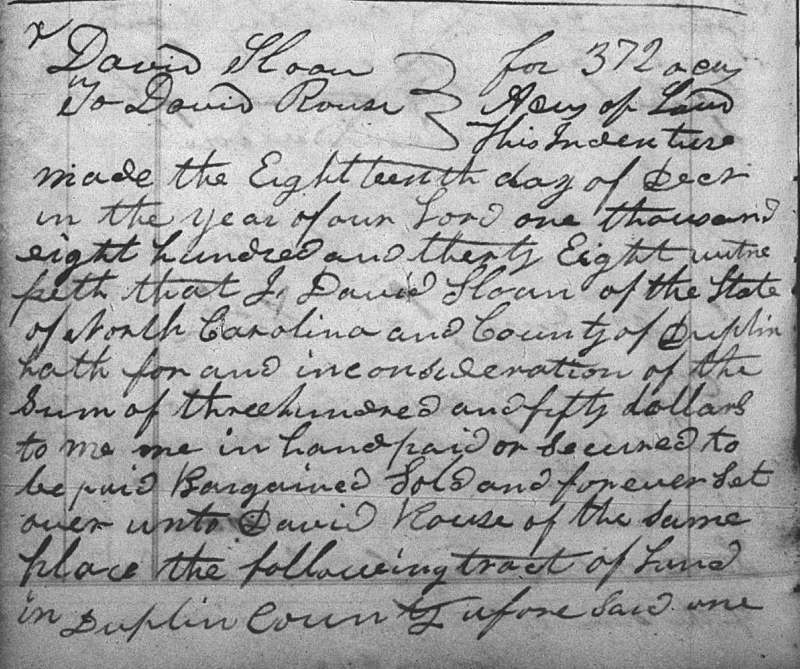 David Sloan } for 372 acrs
To David Rouse } Acrs of Land
This Indenture
made the Eighteenth day of Decr
in the year of our Lord one thousand
eight hundred and therty Eight witne
sseth that I, David Sloan of the State
of North Carolina and County of Duplin
hath for and inconsideration of the
Sum of threehundred and fifty dollars
to me me in hand paid or Secured to
be paid Bargained Sold and forever Set
over unto David Rouse of the same
place the followeing tract of Land
in Duplin County afore Said one